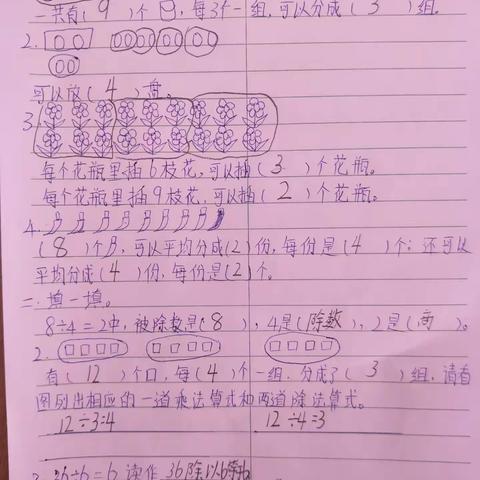 一共有( 9 )个口,每3个一组,可以分成( 3 )组。
2.
可以放( 4 )盘。
3.
每个花瓶里插6枝花,可以插( 3 )个花瓶。
每个花瓶里插9枝花,可以插( 2 )个花瓶。
4.
( 8 )个,可以平均分成(2)份,每份是(4)个;还可以
平均分成(4)份,每份是(2)个。
二.填一填。
8÷4=2中,被除数是(8),4是(除数),2是(商)。
2.
有( 12 )个口,每(4)个一组,分成了( 3 )组,请看
图列出相应的一道乘法算式和两道除法算式。
12÷3=4 12÷4=3
36÷6=6 读作 36除以6等于6